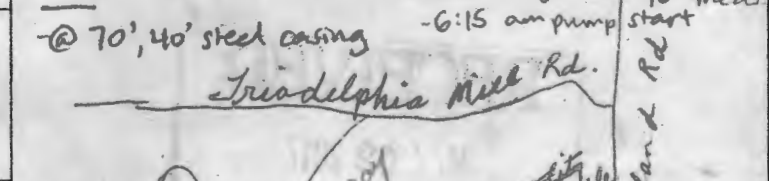 -@ 70', 40' steel casing
-6:15 am pump start
Triadelphia Mill Rd.
Rd